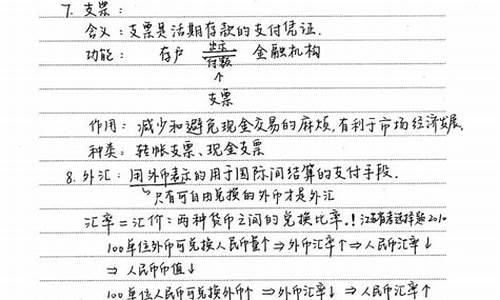 7. 支票:
含义:支票是活期存款的支付凭证.
功能: 存户 出示 付款 金融机构
↑
支票
作用:减少和避免现金交易的麻烦,有利于市场经济发展.
种类:转帐支票、现金支票
8. 外汇:用外币表示的用于国际间结算的支付手段.
只有可自由兑换的外币才是外汇
汇率=汇价:两种货币之间的兑换比率.!江苏高考选择题2010
100单位外币可兑换人民币↑⇒外币汇率↑⇒人民币汇率↓
⇒人民币币值↓
100单位人民币可兑换外币↑⇒外币汇率↓⇒人民币汇率↑